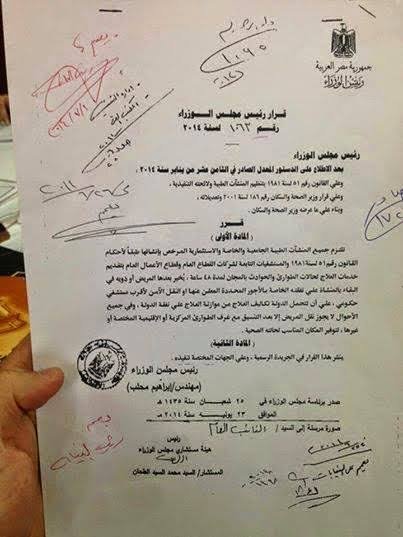 جمهورية مصر العربية
رئيس الوزراء
قرار رئيس مجلس الوزراء
رقم ١٠٦٣ لسنة ٢٠١٤
رئيس مجلس الوزراء
بعد الاطلاع على الدستور المعدل الصادر في الثامن عشر من يناير سنة ٢٠١٤ ،
وعلي القانون رقم ٥١ لسنة ١٩٨١ بتنظيم المنشآت الطبية ولائحته التنفيذية ،
وعلي قرار وزير الصحة والسكان رقم ١٨٦ لسنة ٢٠٠١ وتعديلاته ،
وبناء علي ما عرضه وزير الصحة والسكان .
قرر
(المادة الأولى)
تلتزم جميع المنشآت الطبية الجامعية والخاصة والاستثمارية المرخص بإنشائها طبقاً لأحكام
القانون رقم ٥١ لسنة ١٩٨١ والمستشفيات التابعة لشركات القطاع العام وقطاع الأعمال العام بتقديم
خدمات العلاج لحالات الطوارئ والحوادث بالمجان لمدة ٤٨ ساعة ، يخير بعدها المريض أو ذويه في
البقاء بالمنشأة علي نفقته الخاصة بالأجور المحددة المعلن عنها أو النقل الآمن لأقرب مستشفي
حكومي ، علي أن تتحمل الدولة تكاليف العلاج من موازنة العلاج علي نفقة الدولة ، وفي جميع
الأحوال لا يجوز نقل المريض إلا بعد التنسيق مع غرف الطوارئ المركزية أو الإقليمية المختصة أو
غيرها ، لتوفير المكان المناسب لحالته الصحية .
(المادة الثانية)
ينشر هذا القرار في الجريدة الرسمية ، وعلي الجهات المختصة تنفيذه .
رئيس مجلس الوزراء
(مهندس/إبراهيم محلب)
صدر برئاسة مجلس الوزراء في ٢٥ شعبان سنة ١٤٣٥ هـ
الموافق ٢٣ يونيه سنة ٢٠١٤ م
صورة مرسلة إلى السيد / النائب العام
رئيس
هيئة مستشاري مجلس الوزراء
المستشار/ السيد محمد السيد الطحان